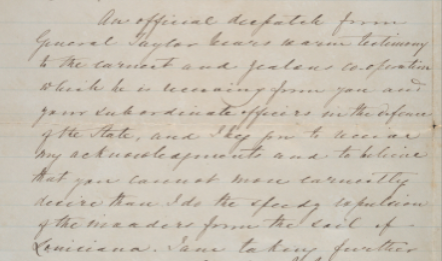 An official despatch from
General Taylor bears warm testimony
to the earnest and zealous co-operation
which he is receiving from you and
your subordinate officers in the defence
of the State, and I beg you to receive
my acknowledgments and to believe
that you cannot more earnestly
desire than I do the speedy expulsion
of the invaders from the soil of
Louisiana. I am taking further